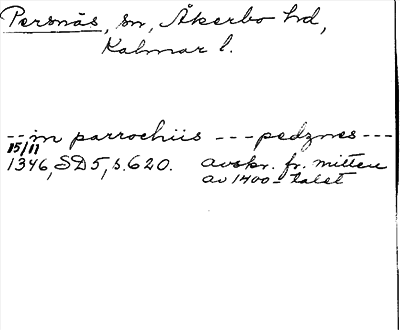 Persnäs, sn, Åkerbo hd,
Kalmar l.
--- in parrochiis --- pedznes ---
15/11
1346, SD5, s. 620. avskr. fr. mitten
av 1400-talet